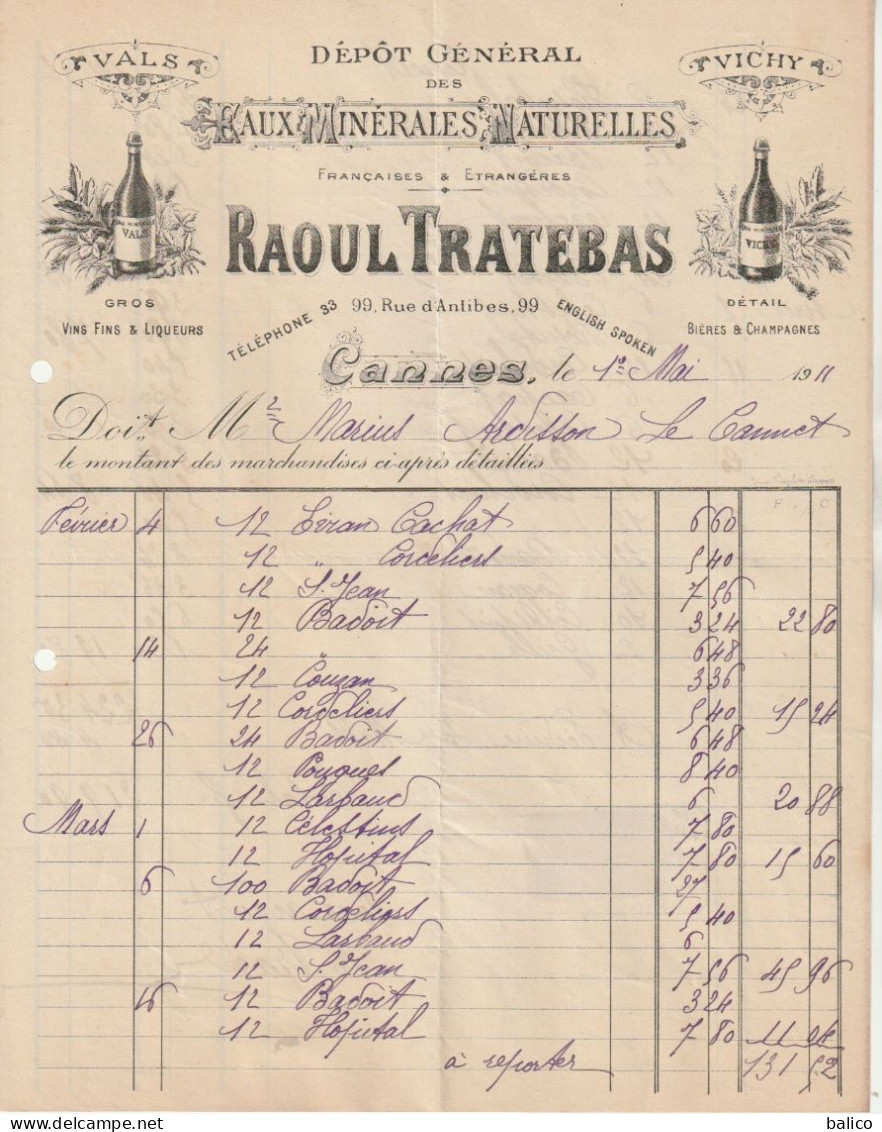 VALS
DÉPÔT GÉNÉRAL
VICHY
DES
EAUX MINÉRALES NATURELLES
FRANÇAISES & ETRANGÈRES
VALS
VICHY
RAOUL TRATEBAS
GROS
DÉTAIL
VINS FINS & LIQUEURS
TÉLÉPHONE 33
99, Rue d'Antibes, 99
ENGLISH SPOKEN
BIÈRES & CHAMPAGNES
Cannes, le 1er Mai 1911
Doit Mr Marius Ardisson Le Cannet
le montant des marchandises ci-après détaillées
F C
Février 4 12 Evian Cachat 6 60
12 " Cordeliers 5 40
12 S. Jean 7 56
12 Badoit 3 24 22 80
14 24 " 6 48
12 Couzan 3 36
12 Cordeliers 5 40 15 24
26 24 Badoit 6 48
12 Pougues 8 40
12 Larbaud 6 20 88
Mars 1 12 Célestins 7 80
12 Hopital 7 80 15 60
6 100 Badoit 27
12 Cordeliers 5 40
12 Larbaud 6
12 S. Jean 7 56 45 96
16 12 Badoit 3 24
12 Hopital 7 80 11 04
à reporter 131 52
balico